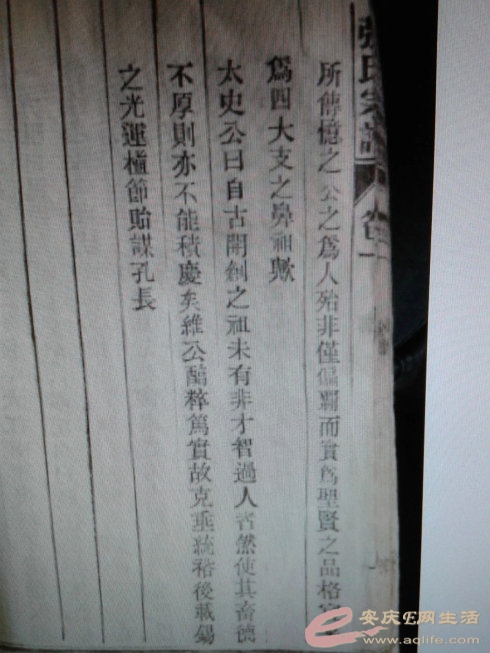 張氏宗譜 卷一
所傳憶之公之爲人殆非僅偏霸而實爲聖賢之品格
爲四大支之鼻祖歟
太史公曰自古開創之祖未有非才智過人者然使其畜德
不厚則亦不能積慶矣維公醕粹篤實故克垂統裕後載錫
之光運植節貽謀孔長
安庆E网生活
www.aqlife.com